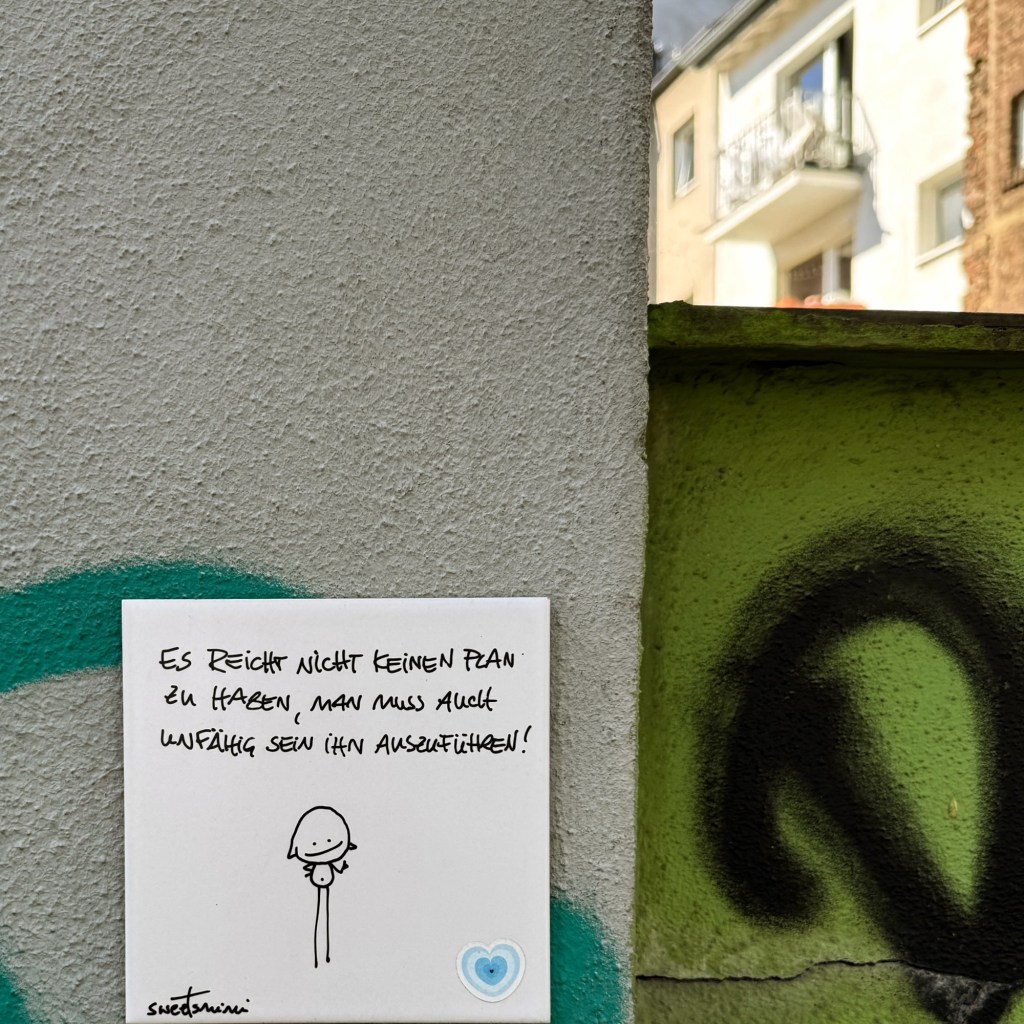 ES REICHT NICHT KEINEN PLAN
ZU HABEN, MAN MUSS AUCH
UNFÄHIG SEIN IHN AUSZUFÜHREN!
sweetsnini